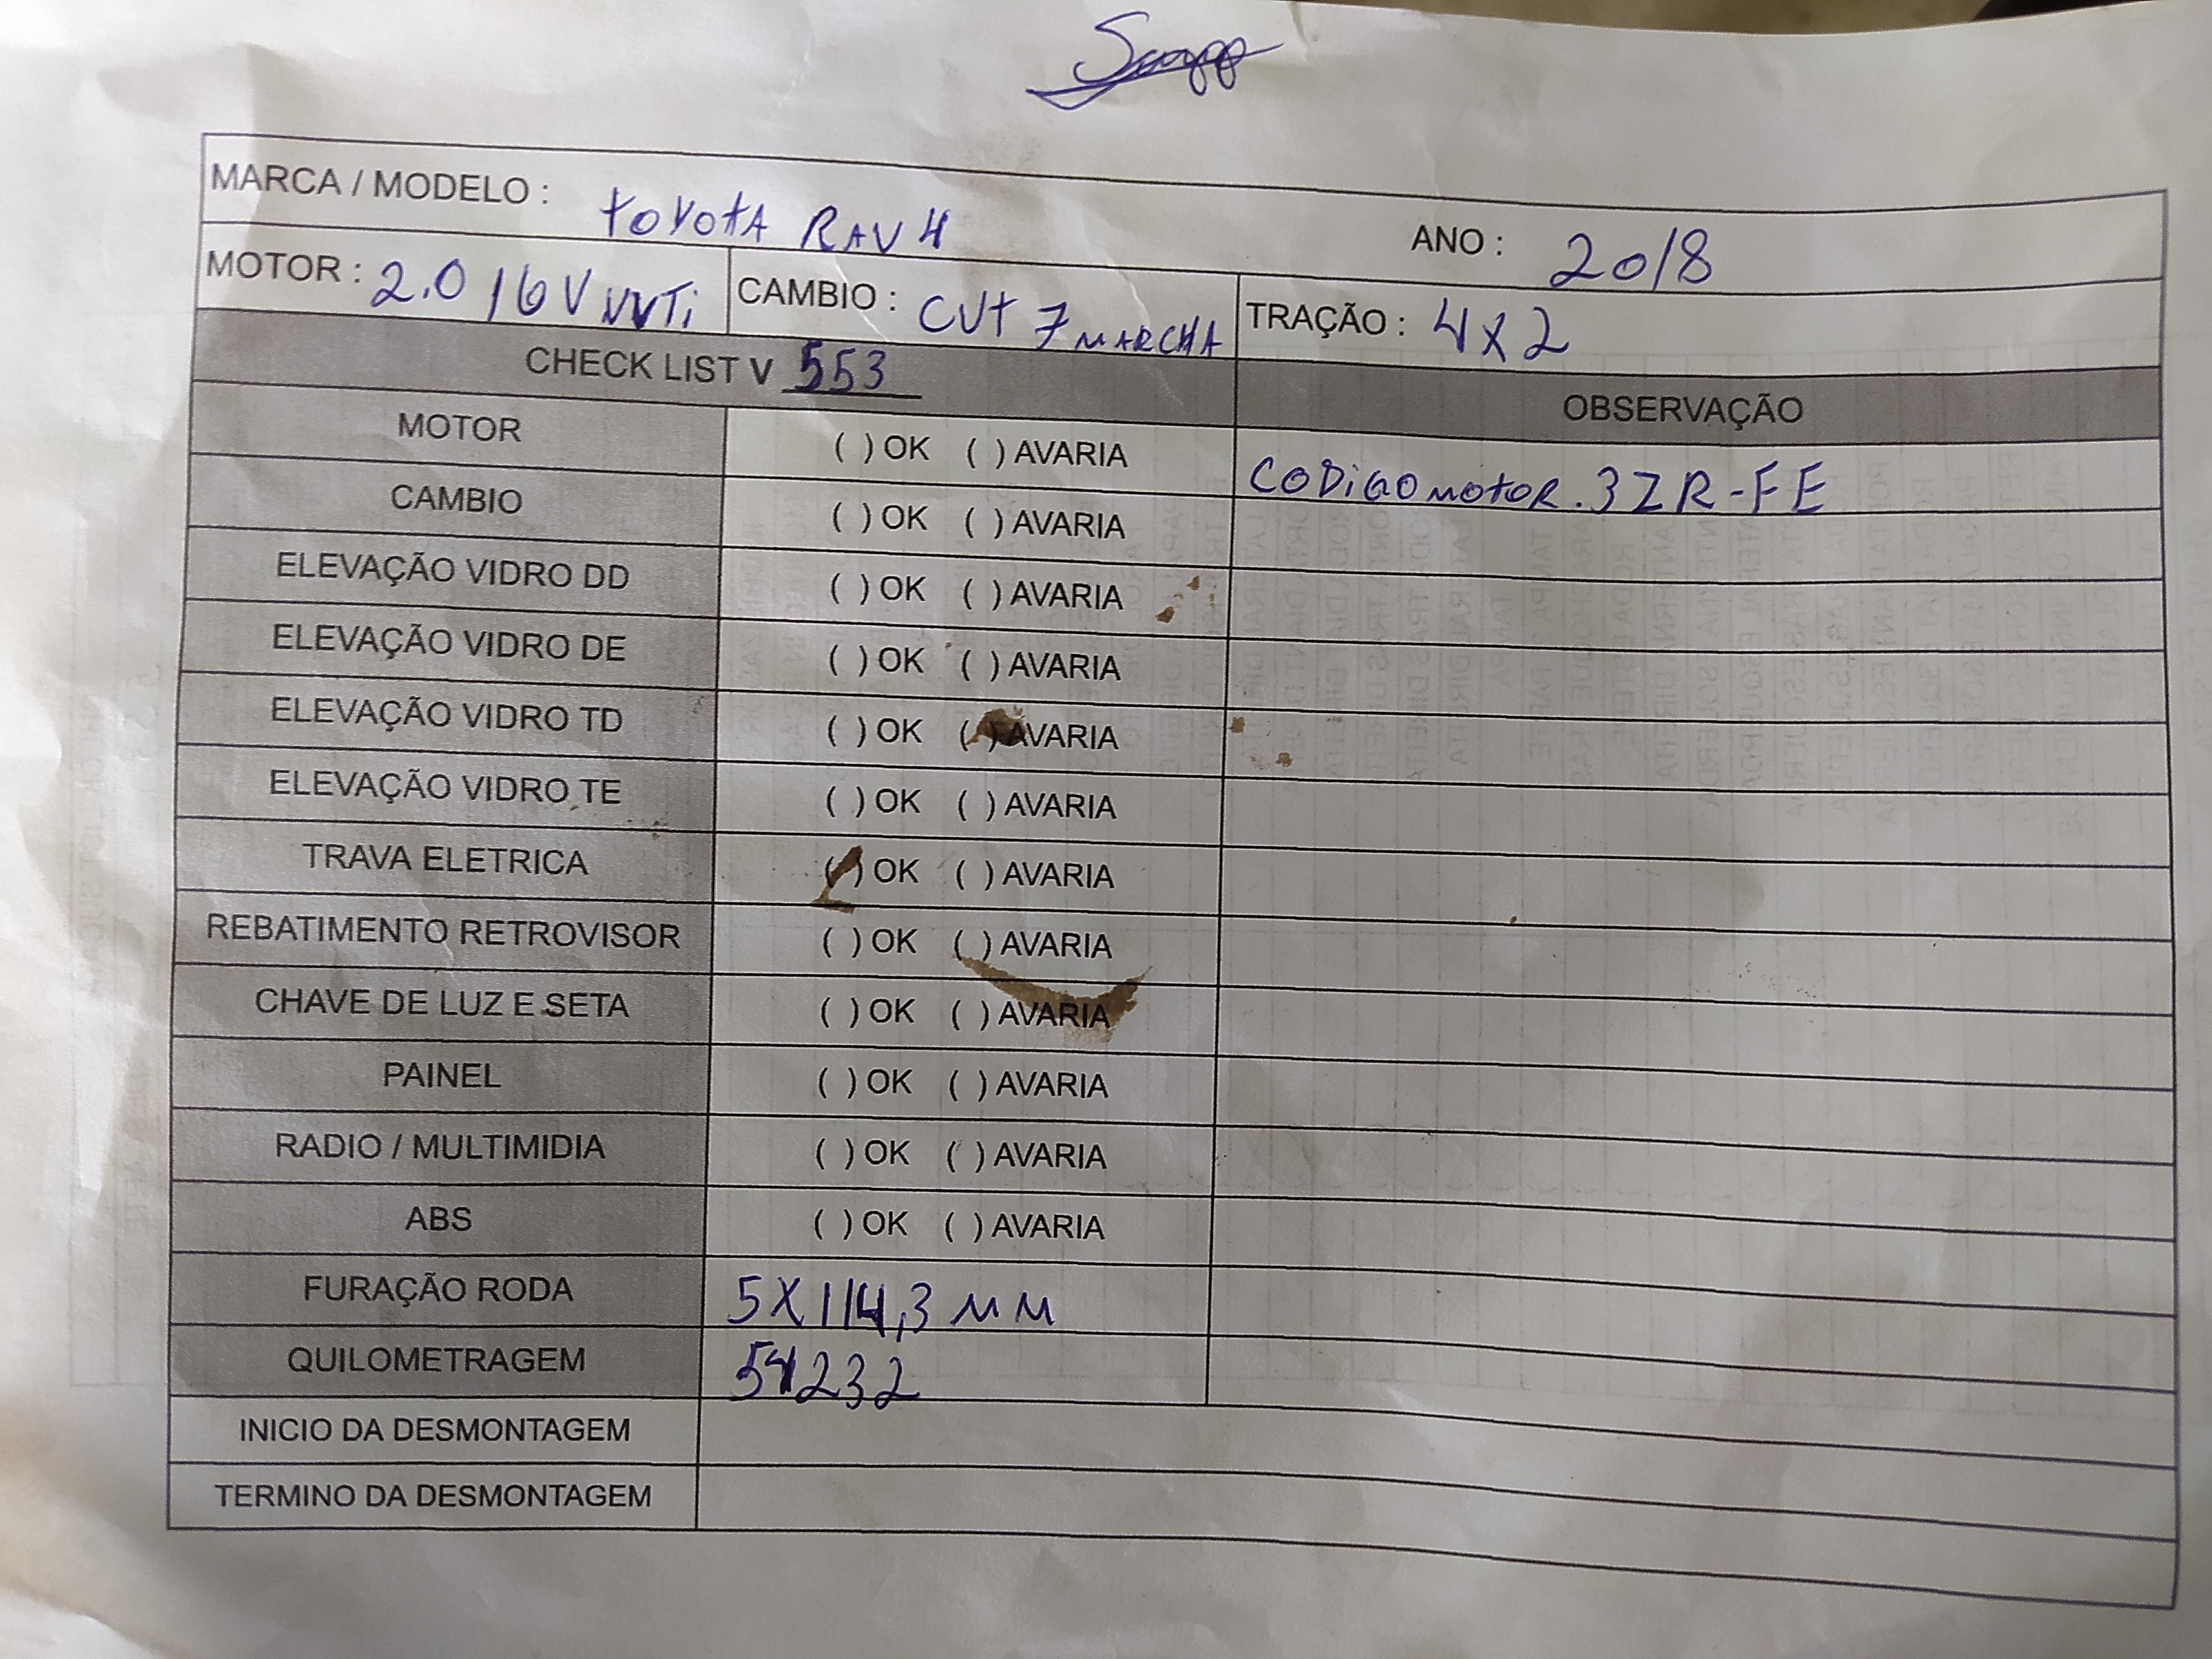 MARCA / MODELO : toyota RAV 4 ANO : 2018
MOTOR : 2.0 16V VVTi CAMBIO : CVt 7 MARCHA TRAÇÃO : 4x2
CHECK LIST V 553 OBSERVAÇÃO
MOTOR ( ) OK ( ) AVARIA CODiGO motoR. 3ZR-FE
CAMBIO ( ) OK ( ) AVARIA
ELEVAÇÃO VIDRO DD ( ) OK ( ) AVARIA
ELEVAÇÃO VIDRO DE ( ) OK ( ) AVARIA
ELEVAÇÃO VIDRO TD ( ) OK ( ) AVARIA
ELEVAÇÃO VIDRO TE ( ) OK ( ) AVARIA
TRAVA ELETRICA ( ) OK ( ) AVARIA
REBATIMENTO RETROVISOR ( ) OK ( ) AVARIA
CHAVE DE LUZ E SETA ( ) OK ( ) AVARIA
PAINEL ( ) OK ( ) AVARIA
RADIO / MULTIMIDIA ( ) OK ( ) AVARIA
ABS ( ) OK ( ) AVARIA
FURAÇÃO RODA 5X114,3 MM
QUILOMETRAGEM
INICIO DA DESMONTAGEM
TERMINO DA DESMONTAGEM